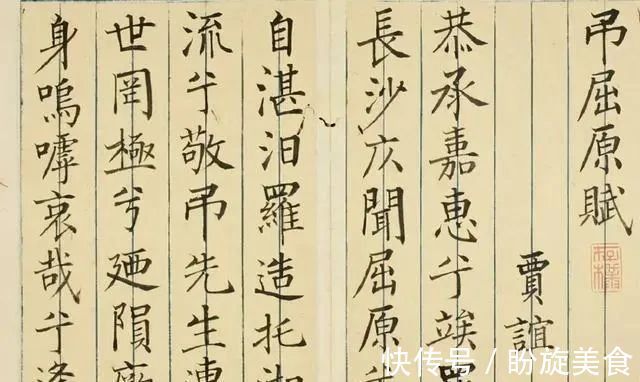 吊屈原賦
賈誼
恭承嘉惠兮竢罪
長沙庂聞屈原兮
自湛汨羅造托湘
流兮敬吊先生遭
世罔極兮廼隕厥
身嗚嘑哀哉兮逢
快传号 / 盼旋美食